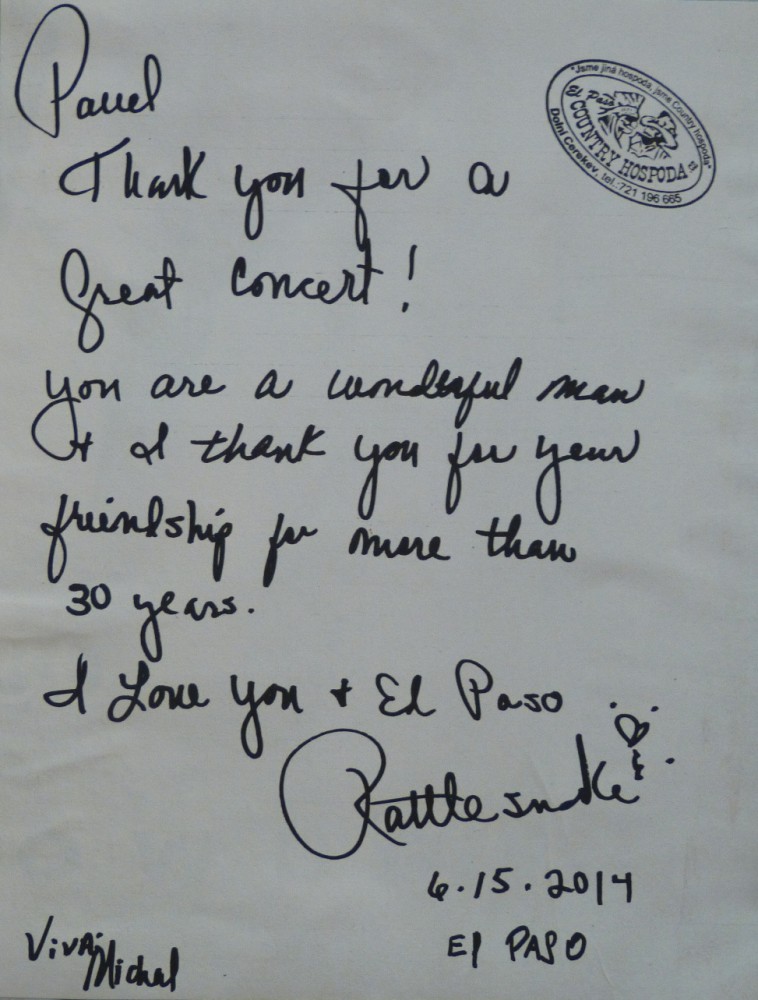 Pavel
"Jsme jiná hospoda, jsme Country hospoda"
El Paso
COUNTRY HOSPODA
Dolní Cerekev, tel.:721 196 665
Thank you for a
Great Concert!
you are a wonderful man
+ I thank you for your
friendship for more than
30 years.
I Love you + El Paso
Rattlesnake
6.15.2014
El PASO
Viva Michal